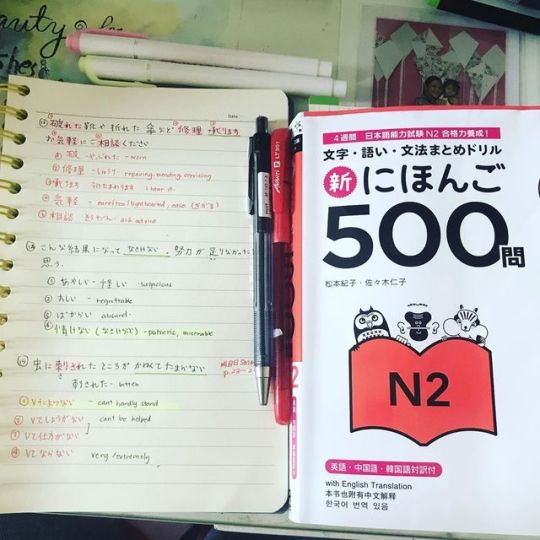 eauty
Date
破れた靴や折れた傘など修理承ります
お気軽にご相談ください
破 - やぶれた - worn
修理 - しゅうり - repairing, mending, servicing
承ります うけたまわります I hear it.
気軽 - carefree/lighthearted,
相談 - そうだん - ask advice
こんな結果になって なさけない。努力が足りなかった
思う。
① あやしい - 怪しい - suspicious
② おしい - regrettable
③ ばからしい absurd
④ 情けない (なさけない) - pathetic, miserable
虫に刺されたところが かゆくてたまらない
刺された - bitten
- can't hardly stand
② Vてしょうがない can't be helped
③ Vて仕方がない
④ Vてならない very/extremely
4週間 日本語能力試験N2合格力養成!
文字・語い・文法まとめドリル
新にほんご
500問
松本紀子・佐々木仁子
N2
英語・中国語・韓国語対訳付
with English Translation
本书也附有中文解释
한국어 번역 있음